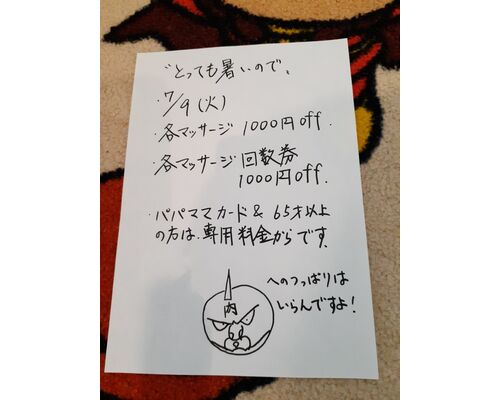 "とっても暑いので、
・7/9(火)
・各マッサージ 1000円off.
・各マッサージ 回数券
1000円off.
・パパママカード& 65才以上
の方は、専用料金からです。
内
へのつっぱりは
いらんですよ!